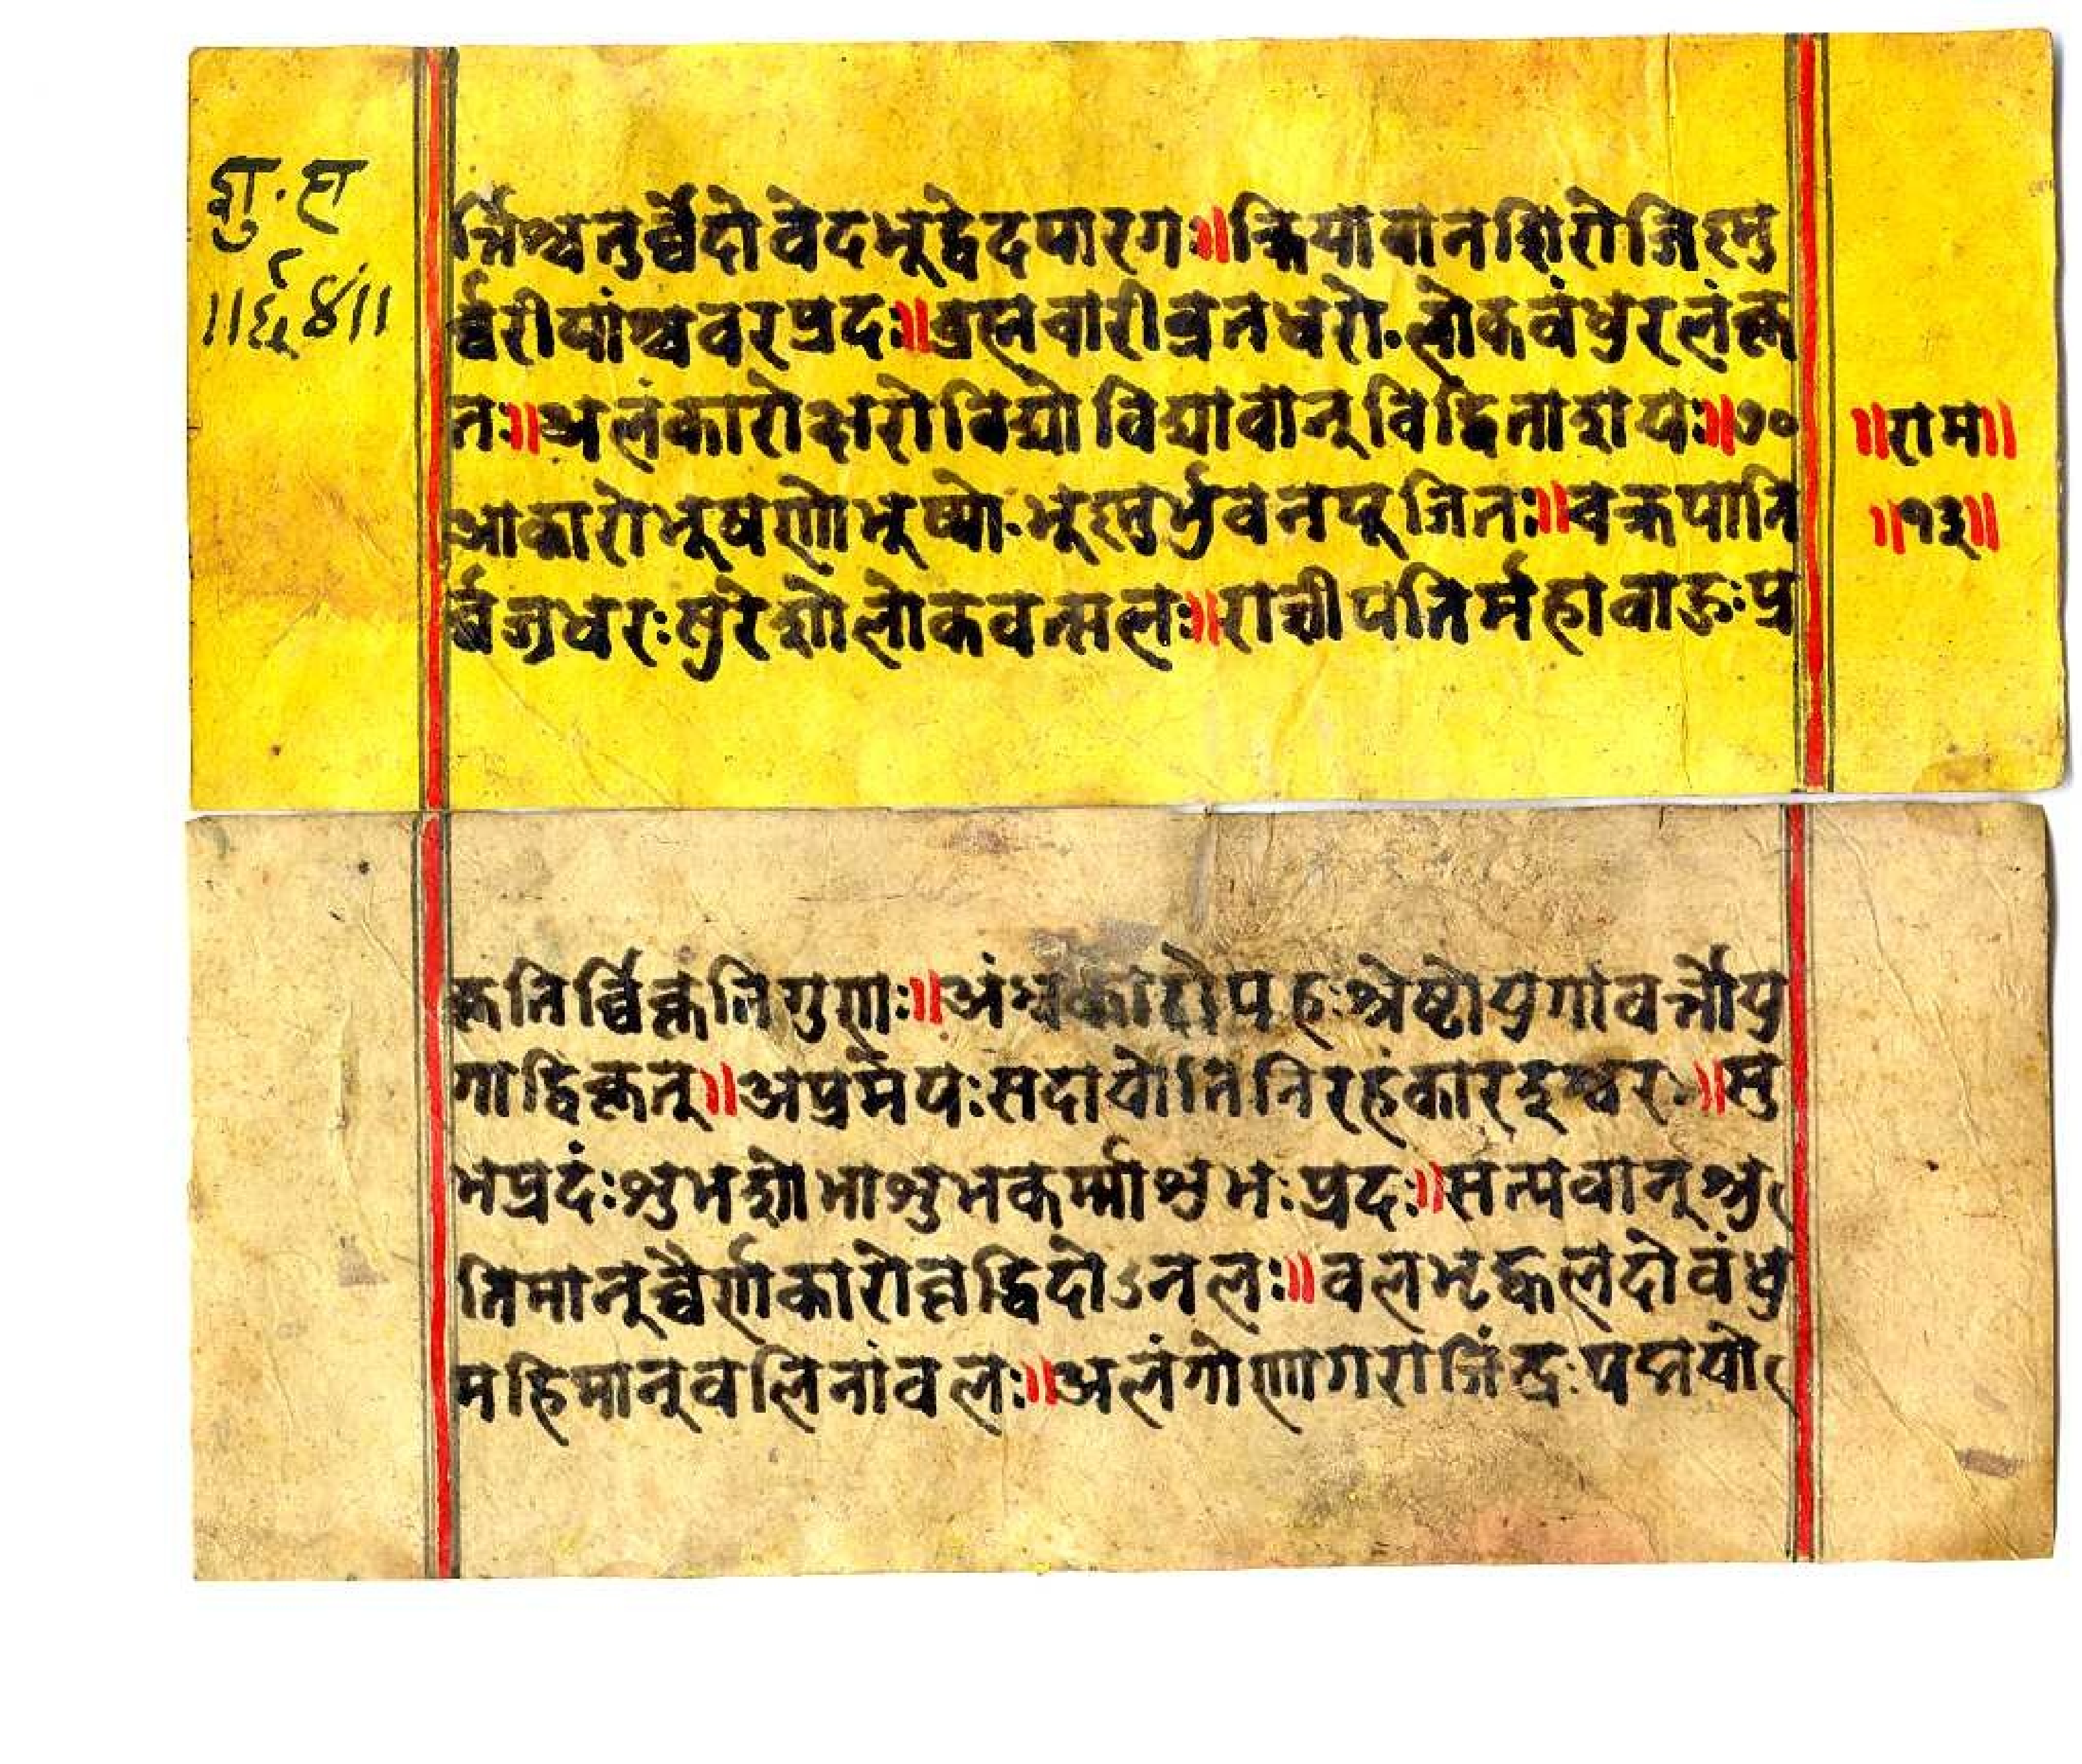 शु॰ह
॥६४॥
र्त्तिश्चतुर्व्वेदो वेदभूद्वेदपारगः॥क्रियावानशिरोजिह्मु
र्व्वरीयांश्चवरप्रदः॥ब्रह्मचारीव्रतधरो॰लोकवंधुरलंकृ
तः॥अलंकारोक्षरोविद्यो विद्यावान् विद्विताशयः॥७०
आकारोभूषणोभूष्यो॰भूस्तुर्भुवनपूजितः॥चक्रपानि
र्वज्रधरः सुरेशोलोकवत्सलः॥राज्ञीपतिर्महावाहुःप्र
॥राम॥
॥१३॥
कृतिर्व्विकृतिगुणः॥अंधकारोपहःश्रेष्टोयुगावर्त्तोयु
गाद्विकृत्॥अप्रमेयःसदायोतिनिरहंकारईश्वरः॥सु
भप्रदंःशुभशोभाशुभकर्म्माशुभःप्रदः॥सत्यवान्श्रु
तिमानुच्चैर्णकारोन्नद्विदोऽनलः॥वलभृद्वलदोवंधु
महिमान्वलिनांवलः॥अलंगोणागराजिंद्रःपद्मयो